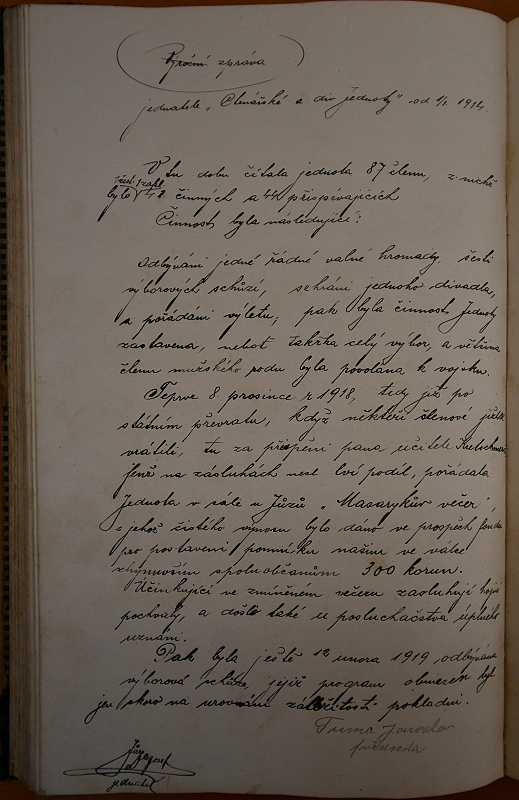 Výroční zpráva
jednatele „Čtenářské a div. Jednoty" od 1/1 1914
V tu dobu čítala jednota 87 členů, z nichž
bylo 42 činných a 44 přispívajících
Činnost byla následující:
Odbývání jedné řádné valné hromady, šesti
výborových schůzí, sehrání jednoho divadla,
a pořádání výletu; pak byla činnost Jednoty
zastavena, neboť takřka celý výbor, a většina
členů mužského rodu byla povolána k vojsku.
Teprve 8. prosince r 1918, tedy již po
státním převratu, když někteří členové již se
vrátili, tu za přispění pana učitele
jenž na zásluhách nesl lví podíl, pořádala
Jednota v sále u Jůzů „Masarykův večer",
z jehož čistého výnosu bylo dáno ve prospěch fondu
pro postavení pomníku našim ve válce
zhynuvším spoluobčanům 300 korun.
Účinkující ve zmíněném večeru zasluhují hojné
pochvaly, a došli také u posluchačstva úplného
uznání.
Pak byla ještě 12 února 1919 odbývána
výborová schůze, jejíž program obmezen byl
jen skoro na urovnání záležitostí pokladní.
Tuma Jaroslav
předseda
Jůza Josef
jednatel